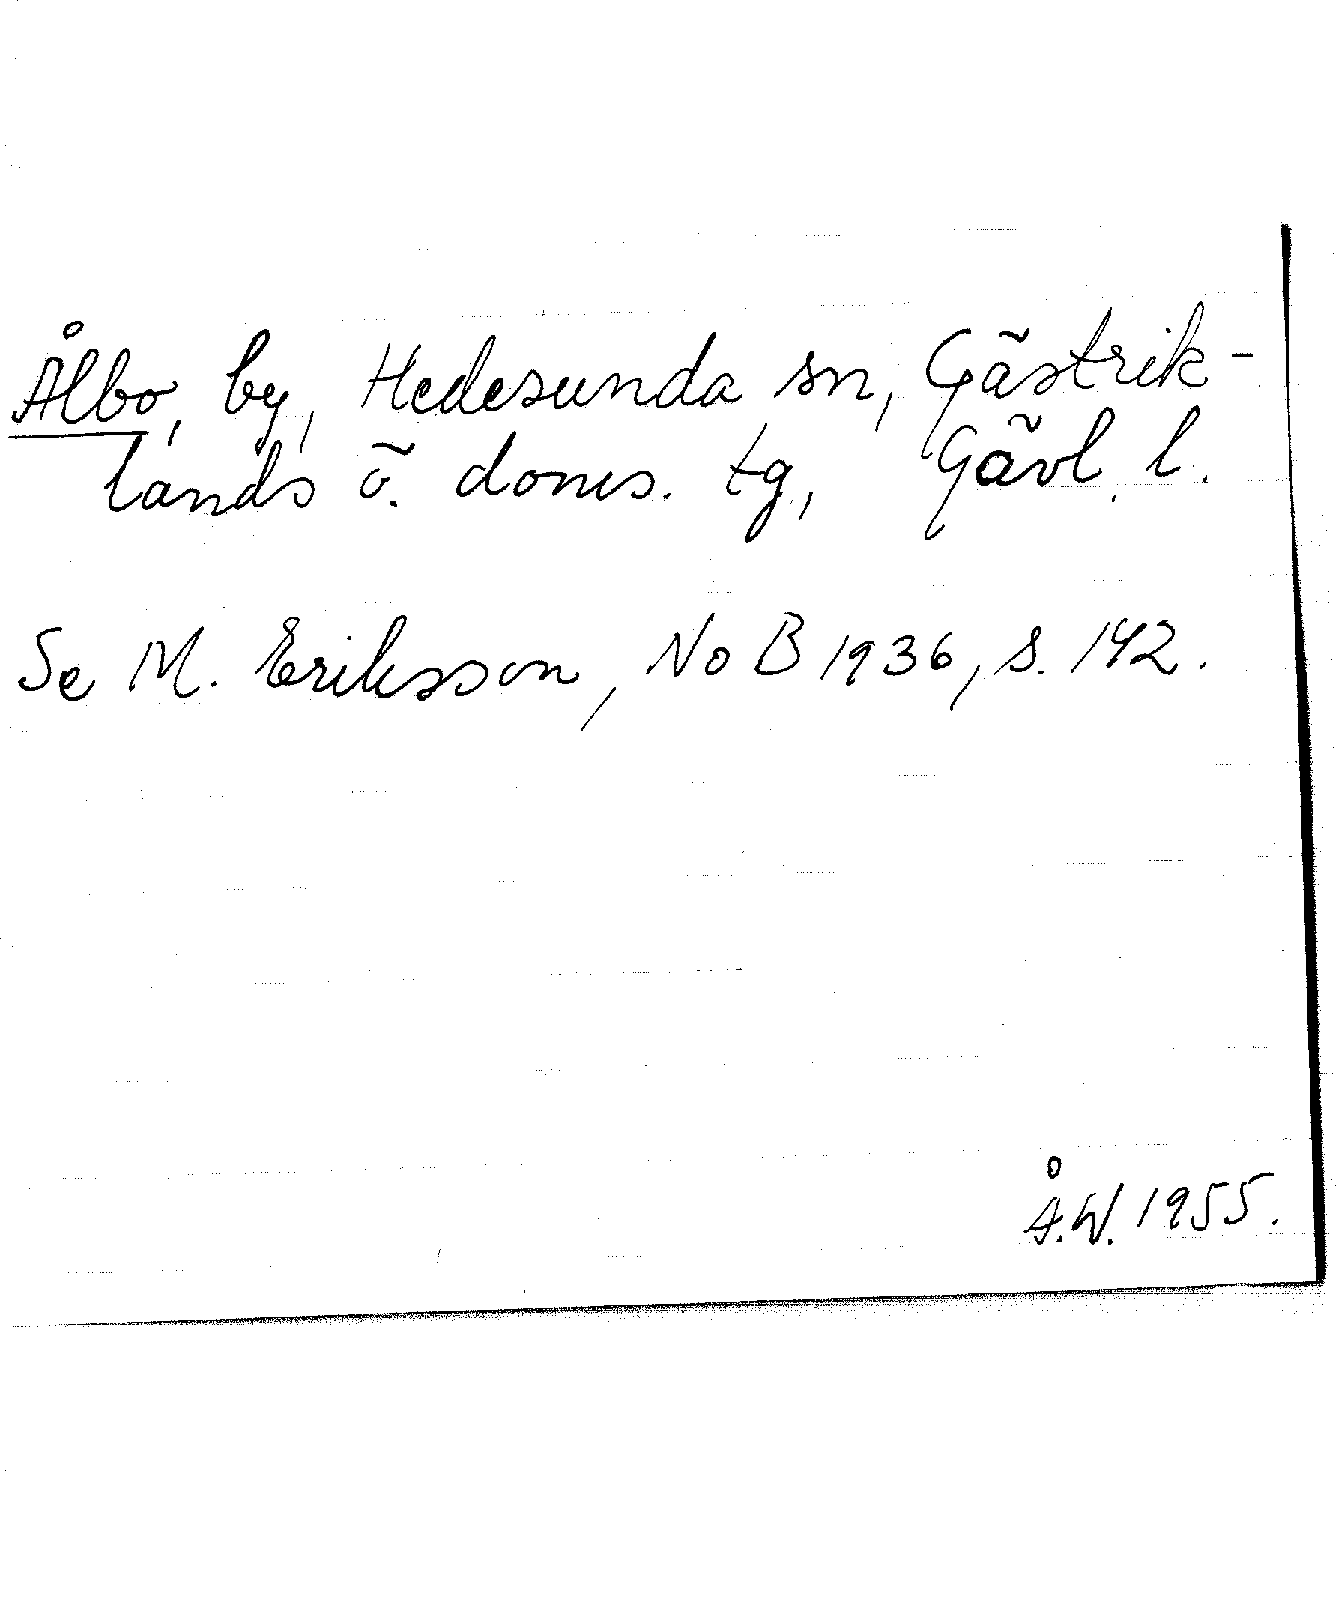 Ålbo, by, Hedesunda sn, Gästrik-
lands ö. doms. tg, Gävl. l.
Se M. Eriksson, NoB 1936, s. 142.
Å.W. 1955.